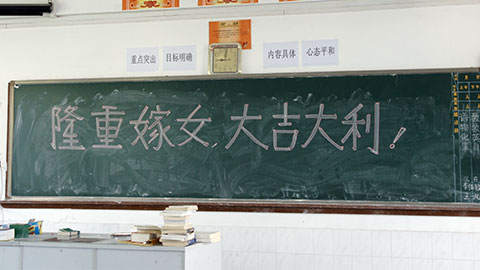 重点突出
目标明确
内容具体
心态平和
隆重嫁女,大吉大利!